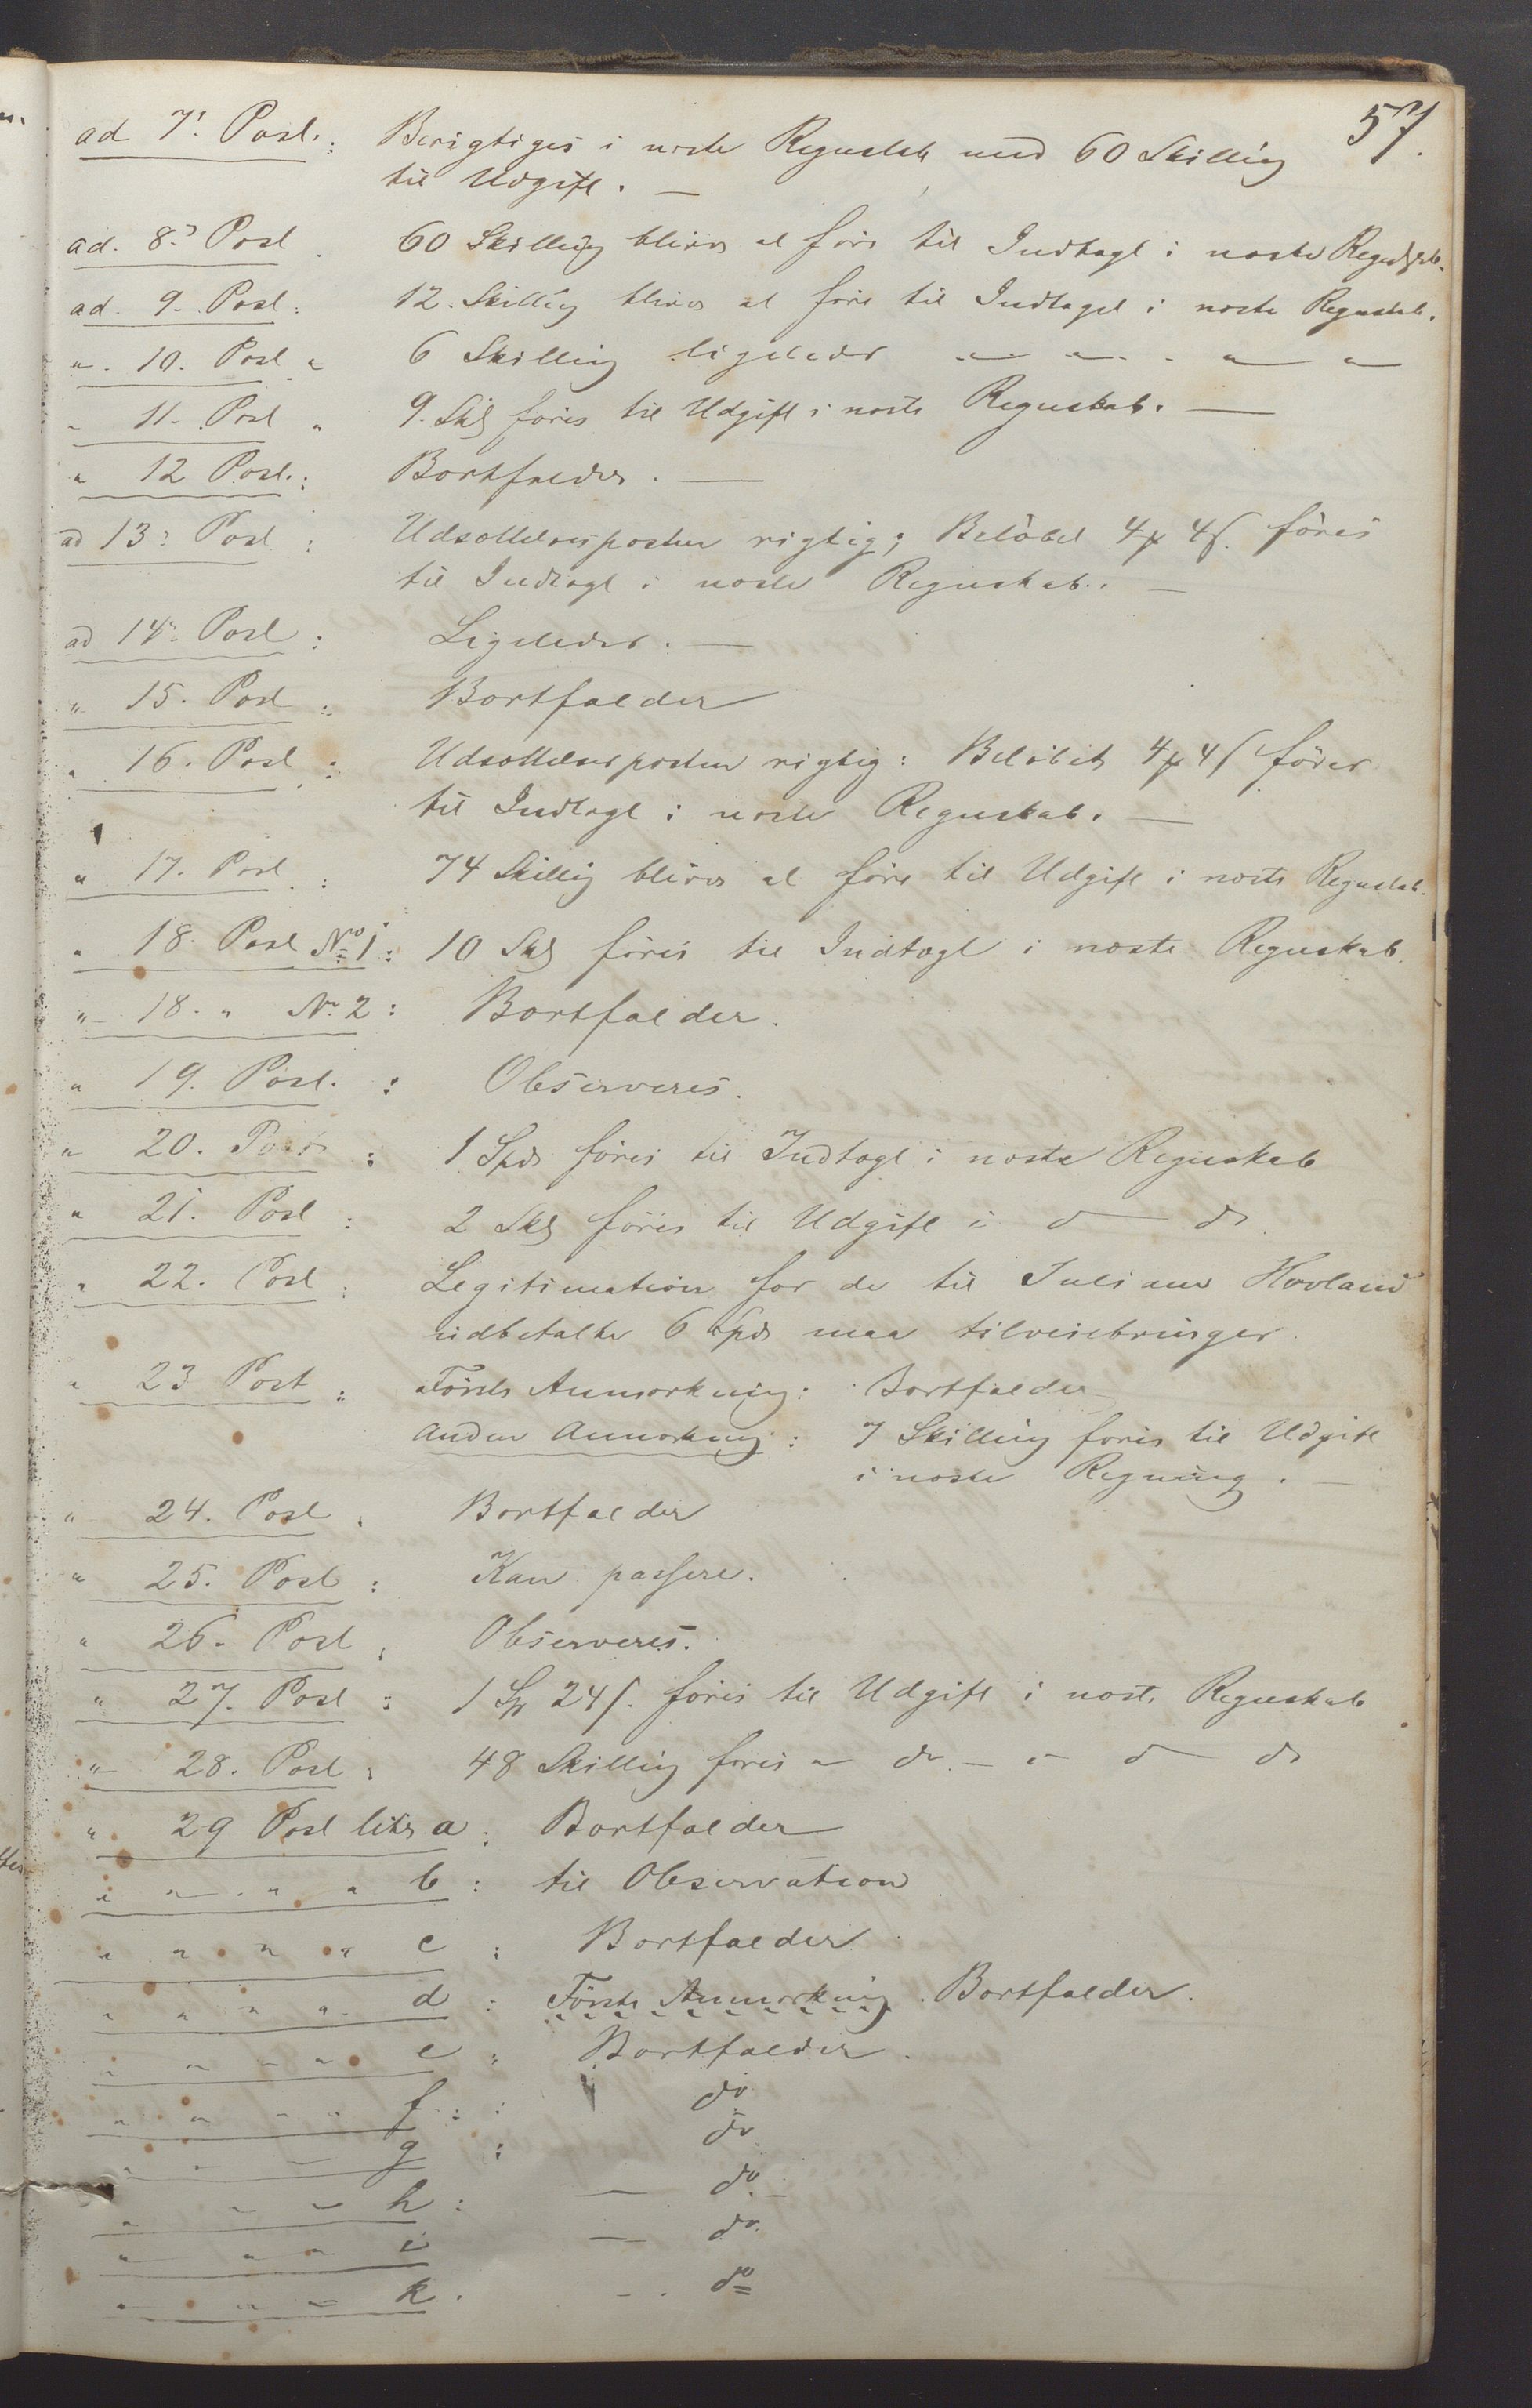 57.
ad 7' Post.: Berigtiges i næste Regnskab med 60 Skilling
til Udgift. —
ad. 8.' Post. 60 Skilling bliver at före til Indtægt i næste Regnskab.
ad. 9. Post: 12. Skilling bliver at före til Indtæget i næste Regnskab.
" . 10. Post " 6 Skilling ligeledes " — " — . " — " —
" 11. Post " 9. Skg föres til Udgift i næste Regnskab. —
" 12 Post.: Bortfalder. —
ad 13' Post : Udsættelsesposten rigtig; Belöbet 4 ¥ 4 ſ. föres
til Indtægt i næste Regnskab. —
ad 14' Post : Ligeledes. —
" 15. Post : Bortfalder
" 16. Post : Udsættelsesposten rigtig: Belöbet 4 ¥ 4 ſ förer
til Indtægt i næste Regnskab. —
" 17. Post : 74 Skillig bliver at före til Udgift i næste Regnskab.
" 18. Post No 1 : 10 Skg föres til Indtægt i næste Regnskab.
" 18. " No. 2 : Bortfalder.
" 19. Post. : Observeres.
" 20. Post : 1 Spd. föres til Indtægt i næste Regnskab
" 21. Post : 2 Skg föres til Udgift i do — do
" 22. Post : Legitimation for de til Juliane Hovland
udbetalte 6 Spd. maa tilveiebringer.
" 23 Post : Förste Anmærkning: Bortfalder
Anden Anmærkning : 7 Skilling föres til Udgift
i næste Regning. —
" 24. Post . Bortfalder
" 25. Post : Kan passere.
" 26. Post . Observeres.
" 27. Post : 1 Sp 24 ſ. föres til Udgift i næste Regnskab
" 28. Post : 48 Skillig föres " do — " do do
" 29 Post litr a : Bortfalder
" " " " b : til Observation
" " " " c : Bortfalder
" " " " d : Förste Anmærkning . Bortfalder.
" " " " e : Bortfalder.
" " " " f : do
" " " g : do
" " " h : — do. —
" " " i — do.
" " " k . — . do